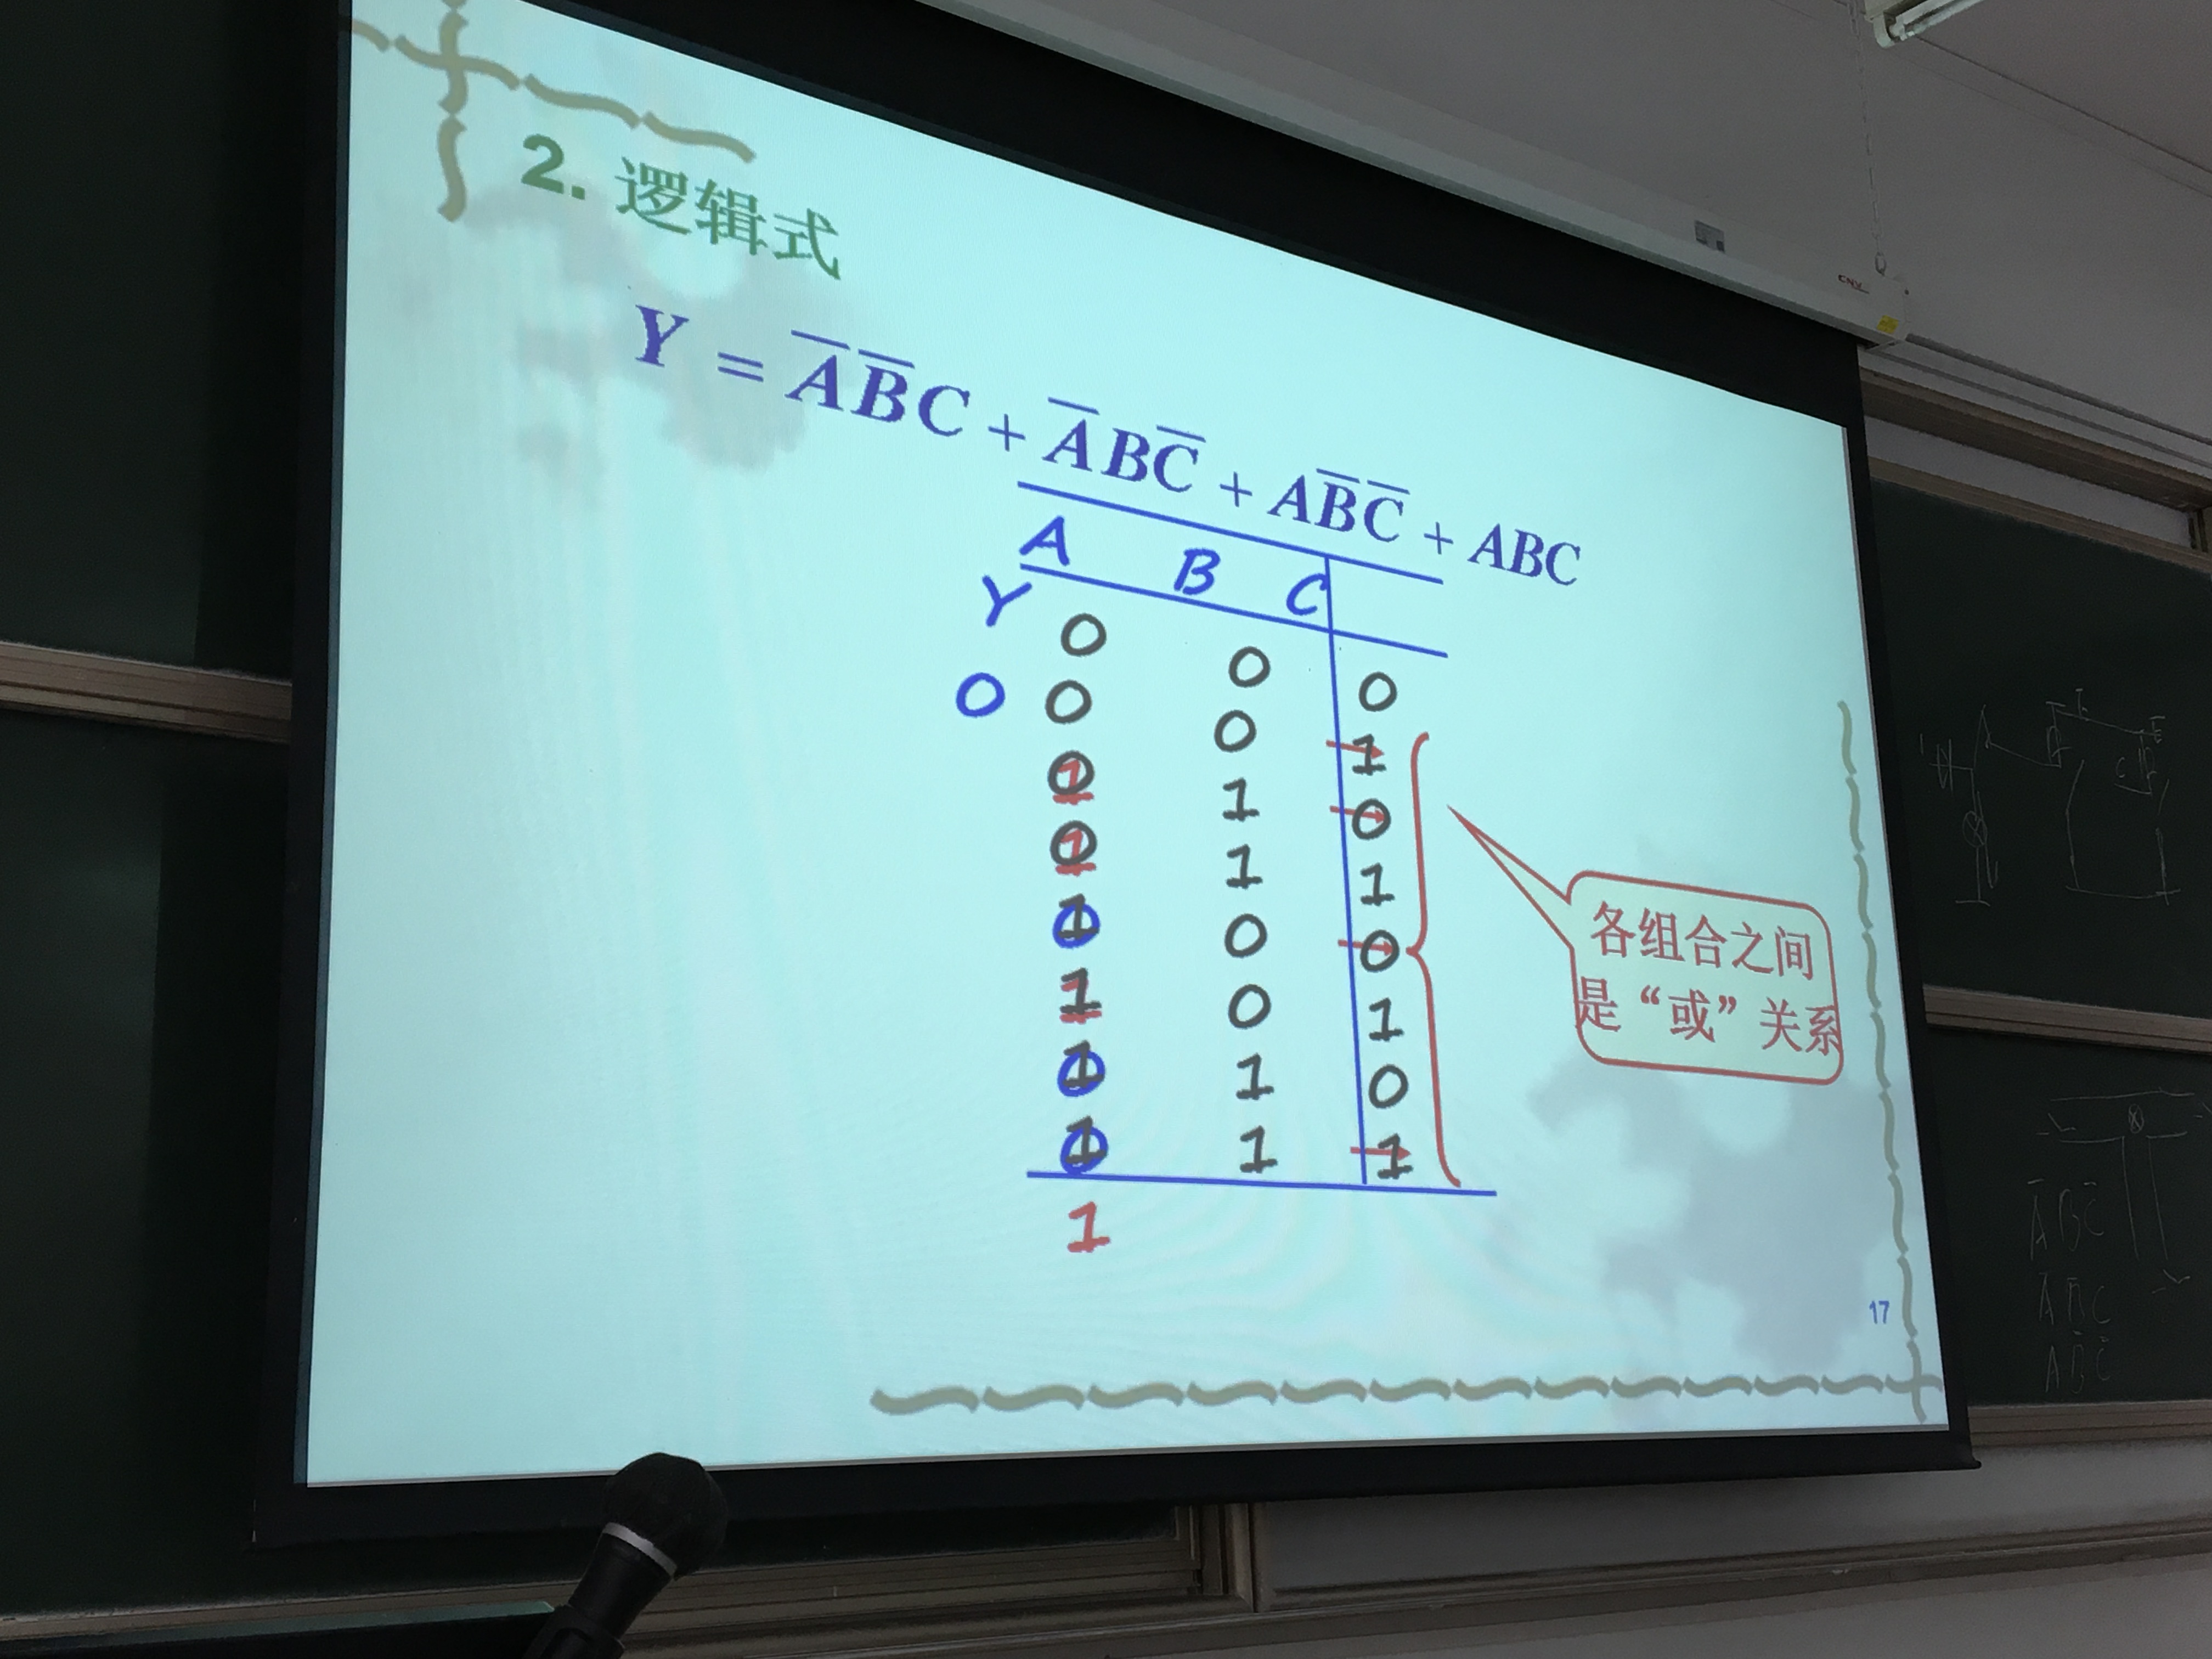 2. 逻辑式
Y = A̅B̅C + A̅BC̅ + AB̅C̅ + ABC
A B C
Y
0 0 0
0 0 0 1
0 1 1 0
0 1 1 1
1 0 0 0
1 1 0 1
1 0 1 0
1 0 1 1
1
各组合之间
是“或”关系
17
CNV
A̅BC̅
ABC
AB̅C̅